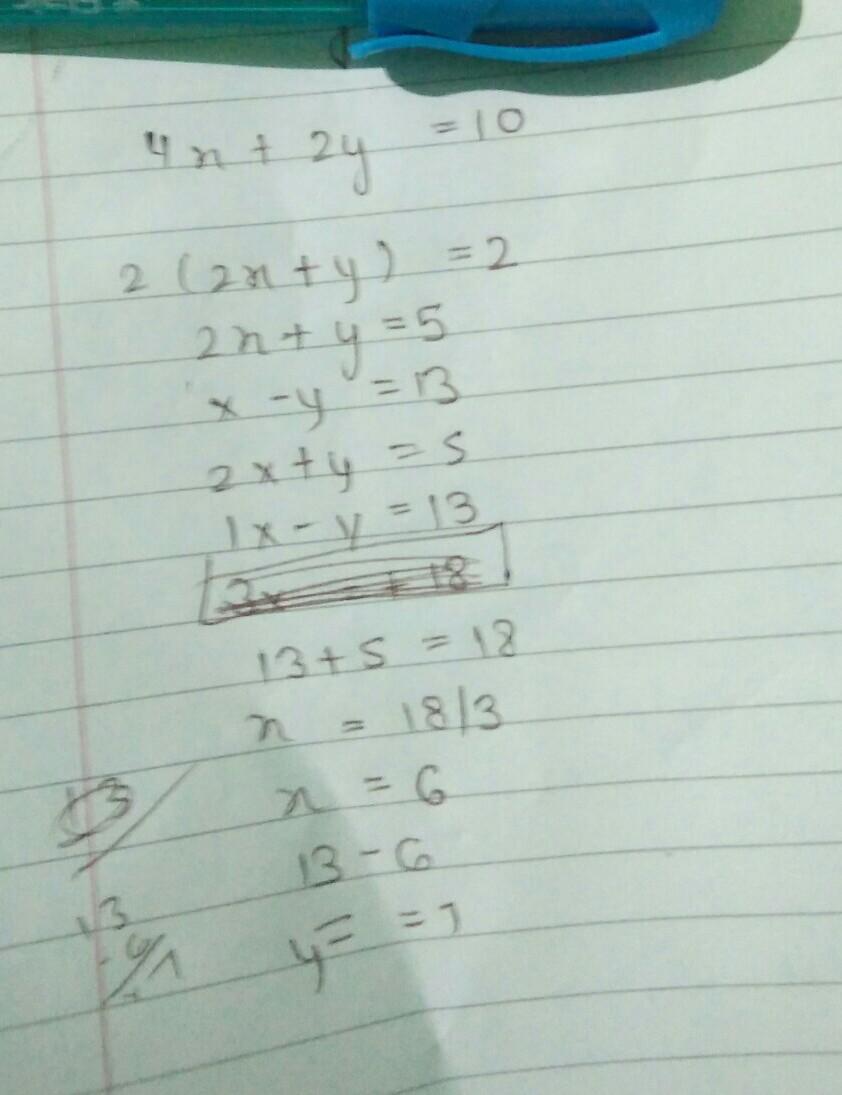 4x + 2y = 10
2 (2x + y) = 2
2x + y = 5
x - y = 13
2x + y = 5
1x - y = 13
13 + 5 = 18
x = 18/3
x = 6
13 - 6
y= = 7
13
13